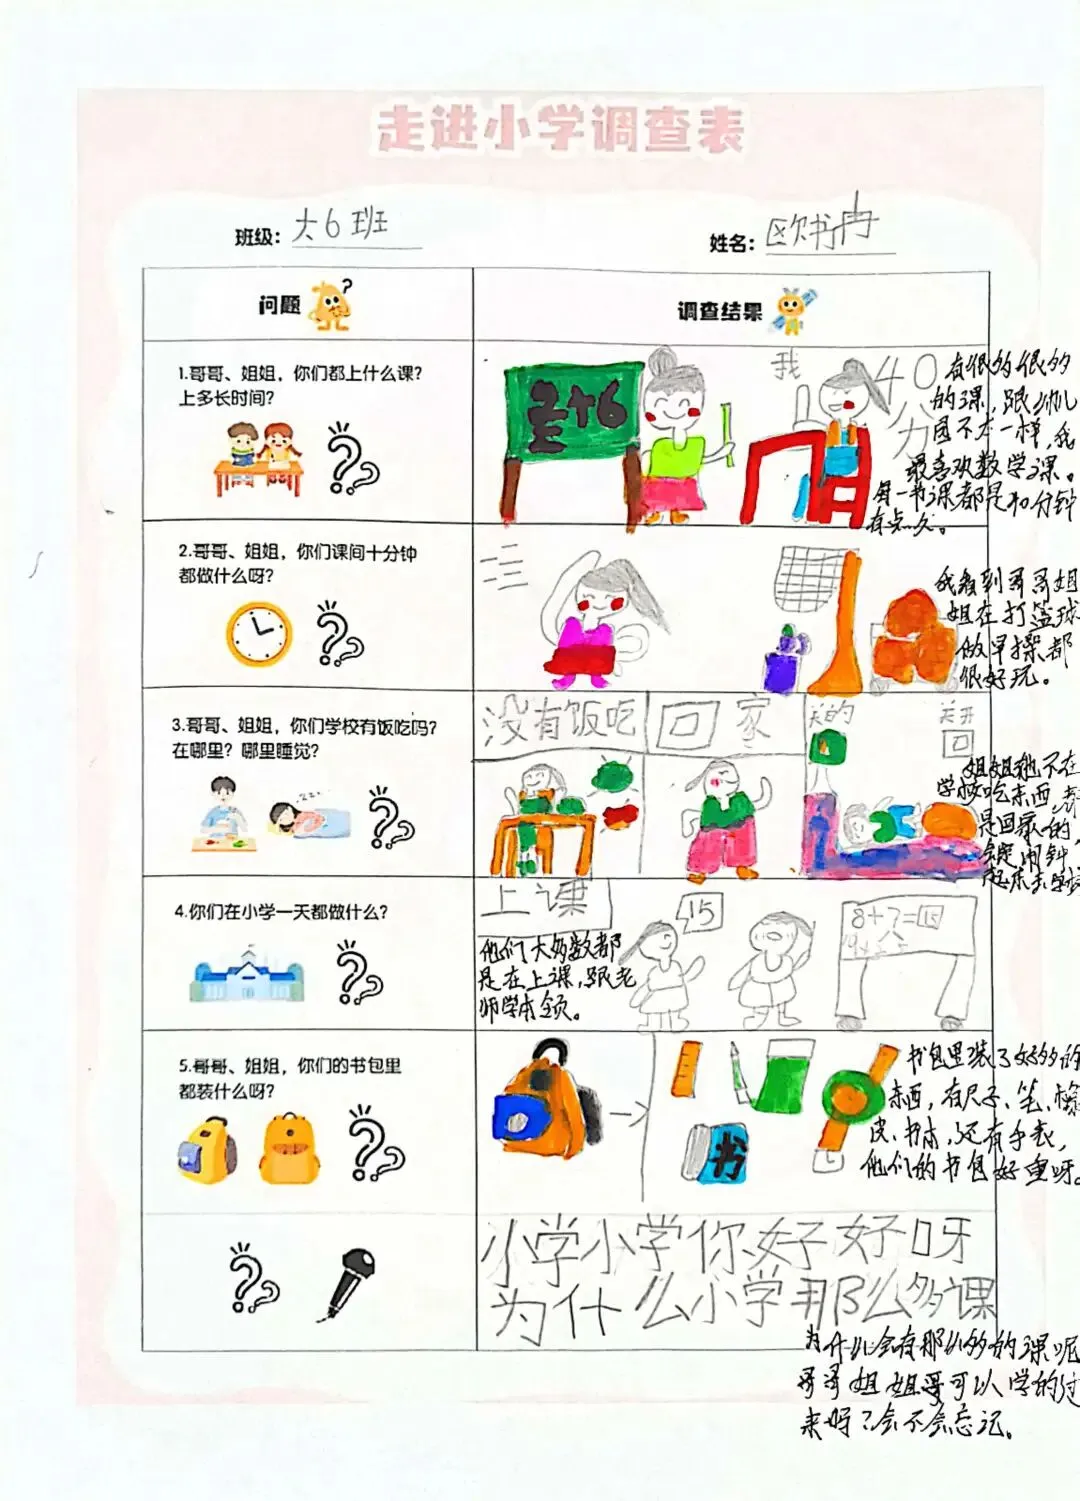 走进小学调查表
班级：大6班
姓名：欧书冉
问题
调查结果
1.哥哥、姐姐，你们都上什么课？
上多长时间？
2+6
我
40
分
有很多很多
的课，跟幼儿
园不太一样，我
最喜欢数学课。
每一节课都是40分钟
有点久。
2.哥哥、姐姐，你们课间十分钟
都做什么呀？
我看到哥哥姐
姐在打篮球
做早操都
很好玩。
3.哥哥、姐姐，你们学校有饭吃吗？
在哪里？哪里睡觉？
没有饭吃
回家
关的
关开
姐姐她不在
学校吃东西
是回家的，
会定闹钟，
起床去学校
4.你们在小学一天都做什么？
上课
他们大多数都
是在上课，跟老
师学本领。
15
8+7=15
5.哥哥、姐姐，你们的书包里
都装什么呀？
书
书包里装了好多的
东西，有尺子、笔、橡
皮、书本，还有手表，
他们的书包好重呀。
小学小学你好好呀
为什么小学那么多课
为什么会有那么多的课呢
哥哥姐姐哥可以学的过
来吗？会不会忘记。